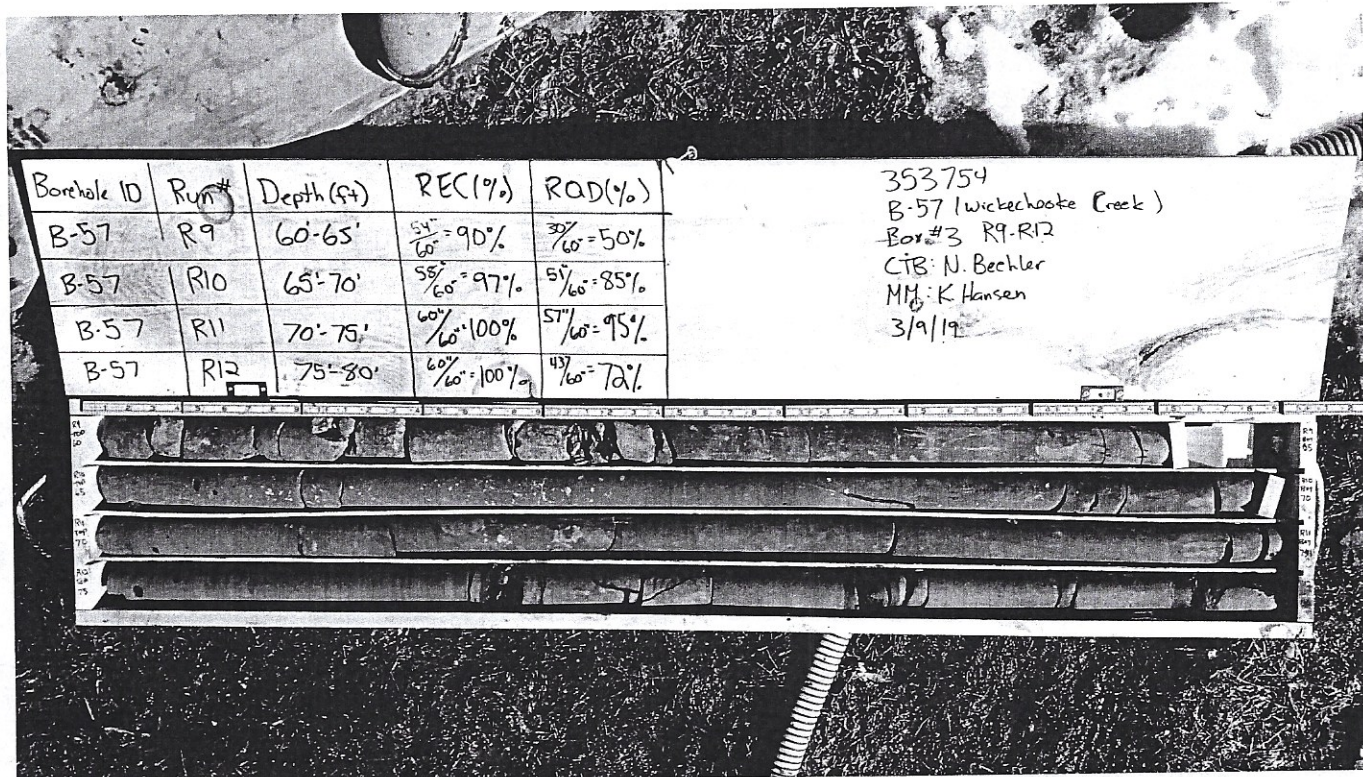 Borehole ID Run# Depth (ft) REC (%) RQD (%)
B-57 R9 60'-65' 54"/60" = 90% 30"/60" = 50%
B-57 R10 65'-70' 58"/60" = 97% 51"/60" = 85%
B-57 R11 70'-75' 60"/60" = 100% 57"/60" = 95%
B-57 R12 75'-80' 60"/60" = 100% 43"/60" = 72%
353754
B-57 (Wickechaoke Creek)
Box #3 R9-R12
CTB: N. Bechler
MM: K Hansen
3/9/19
R9
TOP
60
R9
BOT
65
R10
TOP
65
R10
BOT
70
R11
TOP
70
R11
BOT
75
R12
TOP
75